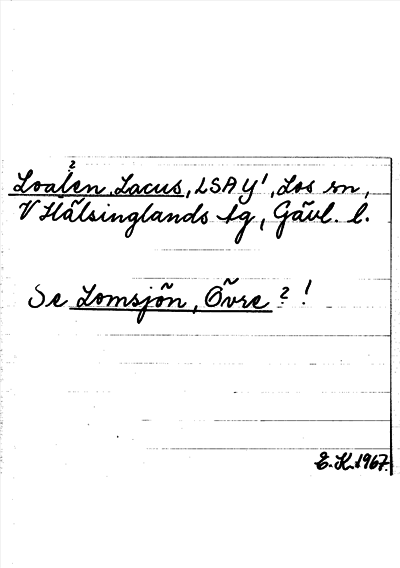 ?
Loalen, Lacus, LSA Y¹, Los sn,
V Hälsinglands tg, Gävl. l.
Se Lomsjön, Övre ? !
E. K. 1967.